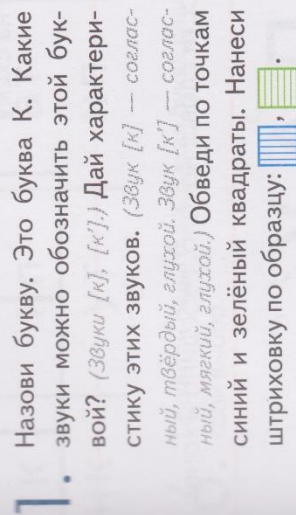 1. Назови букву. Это буква К. Какие
звуки можно обозначить этой бук-
вой? (Звуки [к], [к’].) Дай характери-
стику этих звуков. (Звук [к] — соглас-
ный, твёрдый, глухой. Звук [к’] — соглас-
ный, мягкий, глухой.) Обведи по точкам
синий и зелёный квадраты. Нанеси
штриховку по образцу: , .